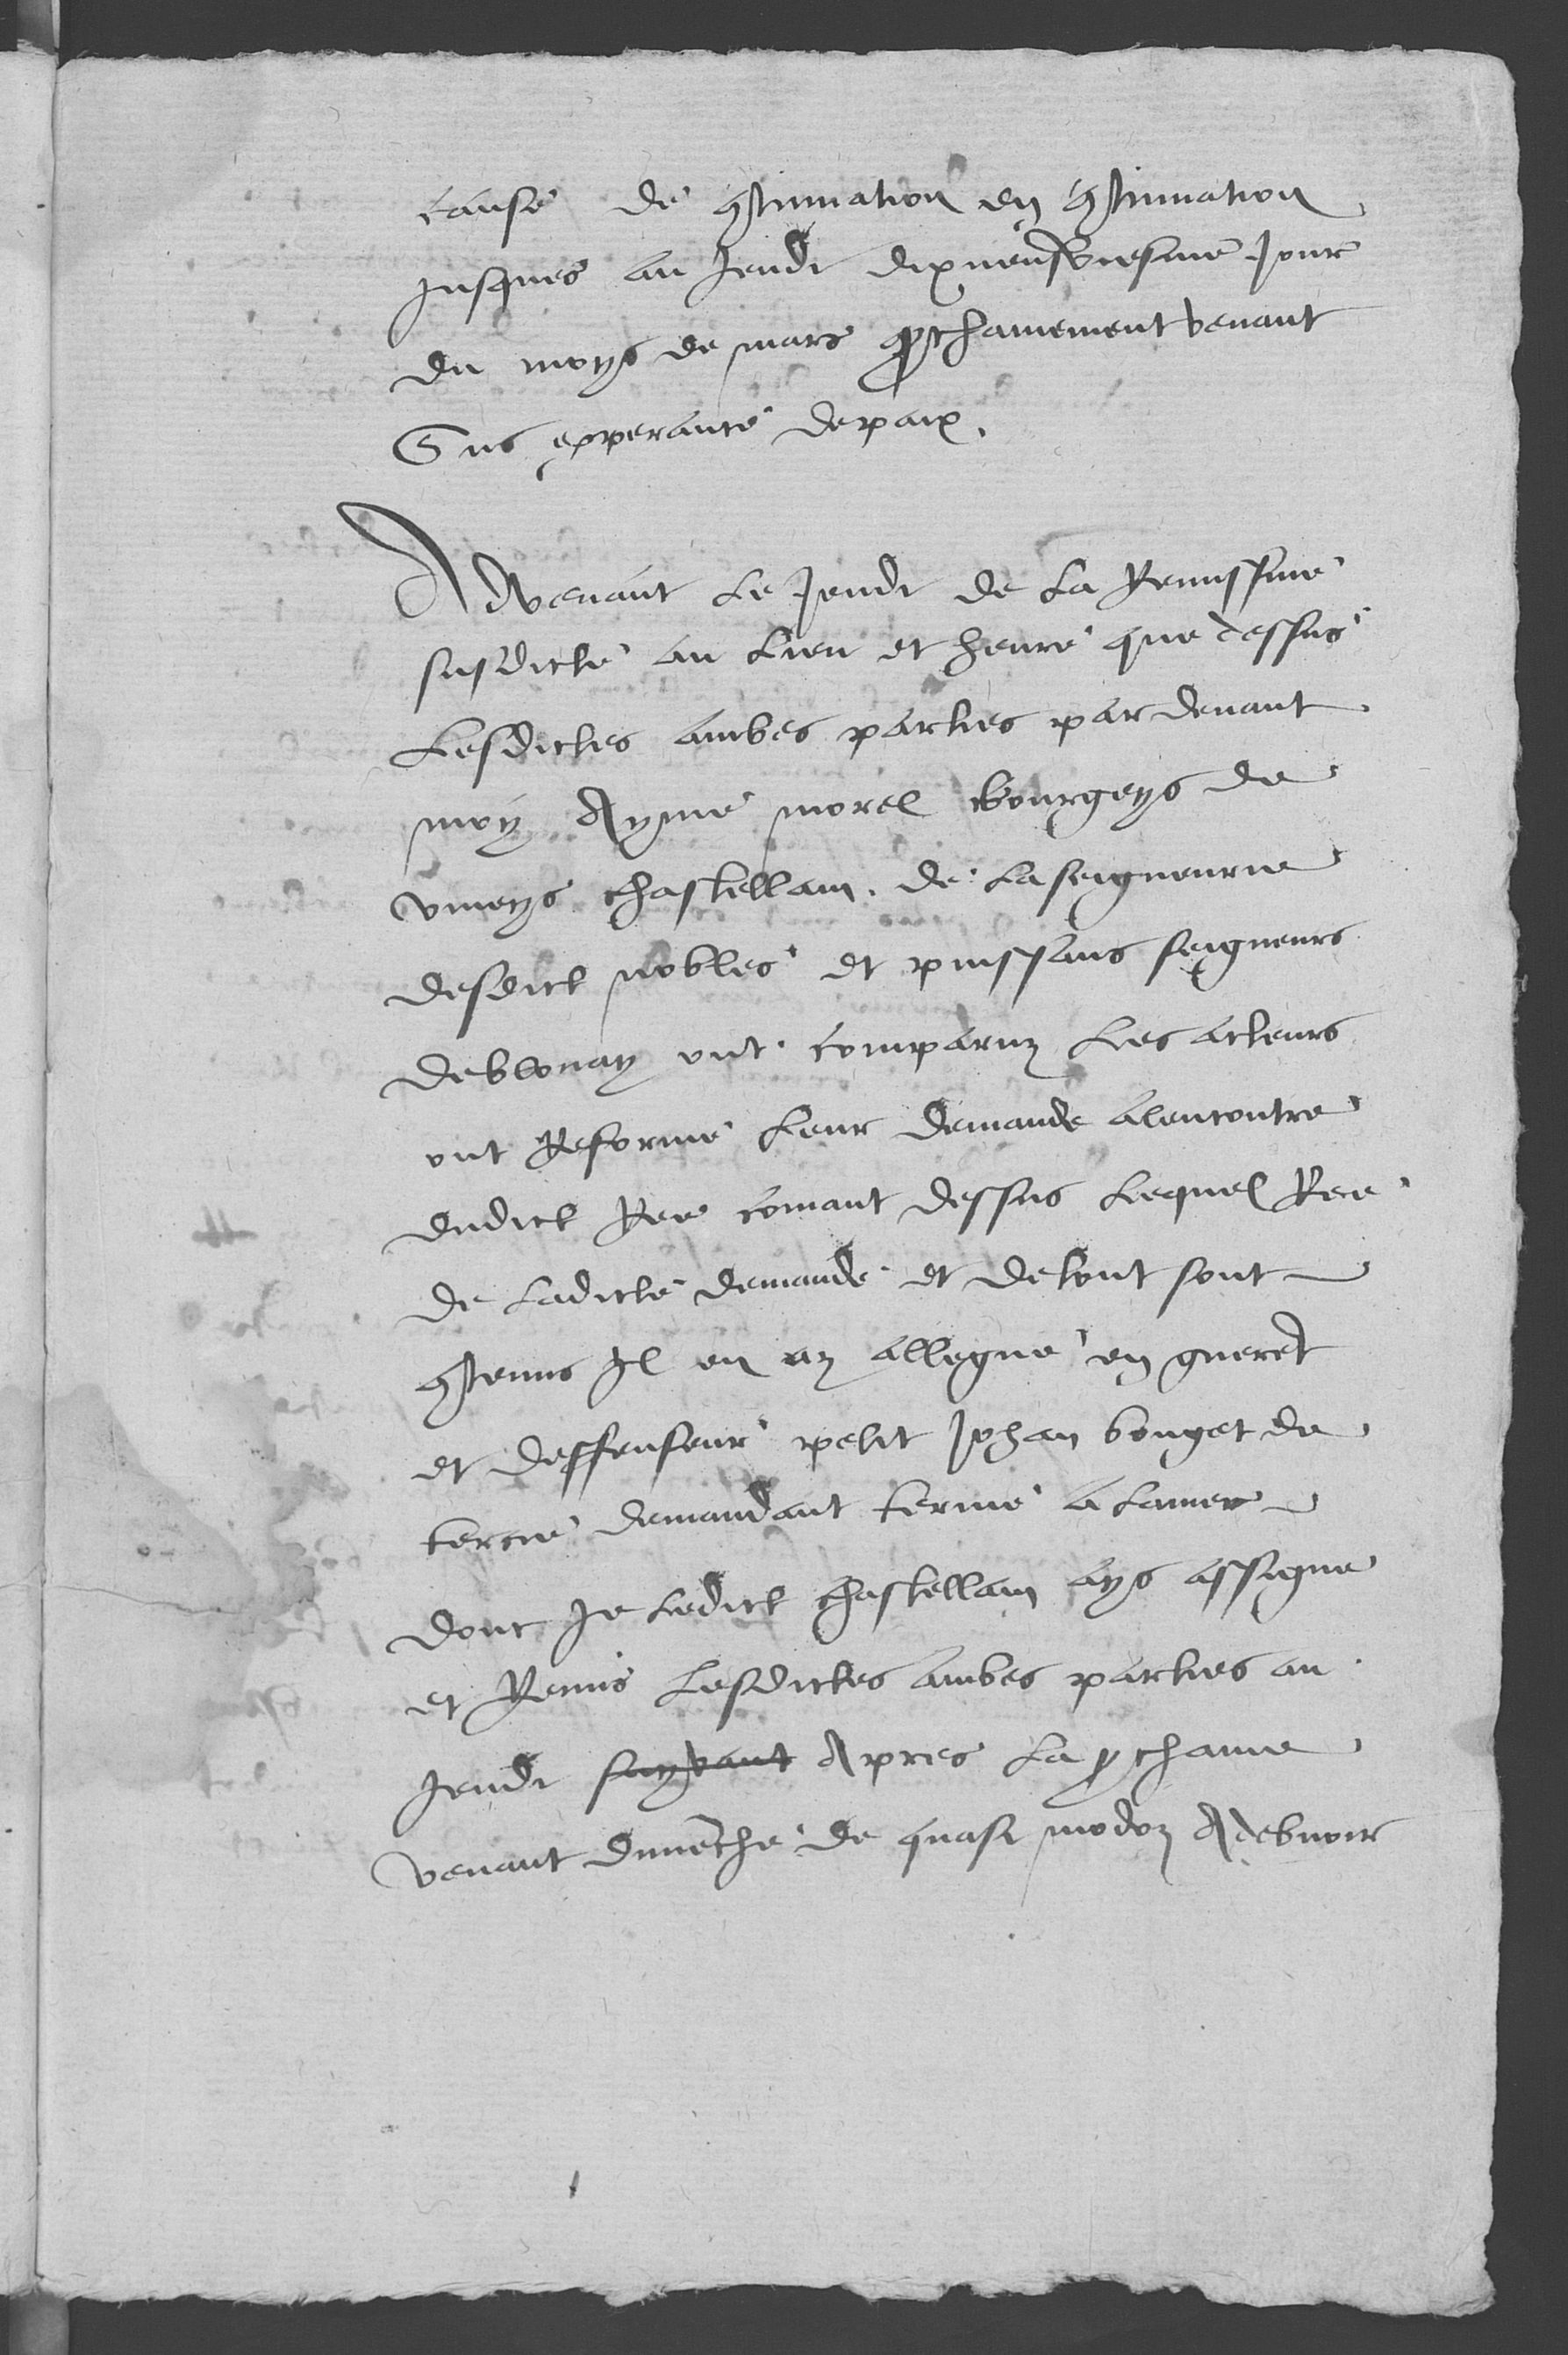 cause de ɔtinuation en ɔtinuation
jusques au jeudi dixneufviesme jour
du moys de mars prochainement venant
sus experance de paix.
Advenant le jeudi de la remissime
susdicte au lieu et heure que dessus
lesdictes ambes parties par devant
moy Ayme morel bourgeys de
viveys chastellain de la seigneurie
desdict nobles et puissans seigneurs
de blonay ont comparuz les acteurs
ont reforme leur demande alencontre
dudict Ree comant dessus lequel Ree
de ladicte demande et de tout sont
ɔtenus Il en az allegue en guerent
et deffenseur petit Johan bouget de
tercie demandant terme a lamer
dont Je ledict chastellain ays assigne
et remis lesdictes ambes parties au
jeudi suyvant Apres la prochaine
venant dimenche de quasi modoz A debvoir